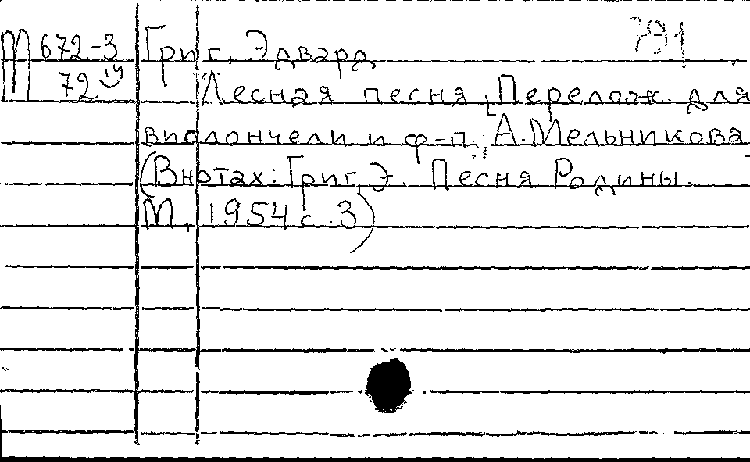 М 672-3 Григ, Эдвард.
72 Лесная песня [Перелож. для
виолончели и ф-п. А. Мельникова
(В нотах: Григ, Э. Песня Родины.
М., 1954 с. 3)